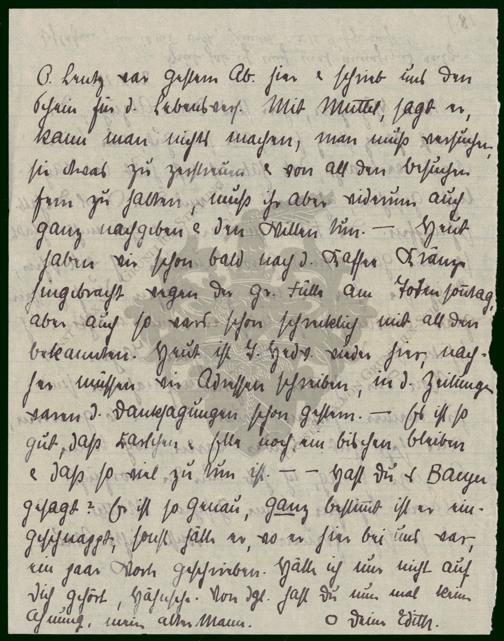 O. Lentz war gestern Ab. hier & schrieb uns den
Schein für d. Lebensvers. Mit Muttel, sagt er,
kann man nichts machen, man muß versuchen,
sie etwas zu zerstreuen & von all den Besuchen
fern zu halten, muß ihr aber widerum auch
ganz nachgeben & den Willen tun. — Heut
haben wir schon bald nach d. Kaffee Kränze
hingebracht wegen der gr. Fülle am Totensonntag,
aber auch so wars schon schrecklich mit all den
bekannten. Heut ist T. Hedw. wieder hier, nach-
her müssen wir Adressen schreiben, in d. Zeitungen
waren d. Danksagungen schon gestern. — Es ist so
gut, daß Karlchen & Elle noch ein bischen bleiben
& daß so viel zu tun ist. — — Hast Du &
gesagt? Er ist so. Genau, ganz bestimmt ist er ein-
geschnappt, sonst hätte er, wo er hier bei uns war,
ein paar Worte geschrieben. Hätte ich nur nicht auf
Dich gehört, Von dgl. hast Du nun mal keine
Ahnung, mein alter Mann. O Deine Edith.